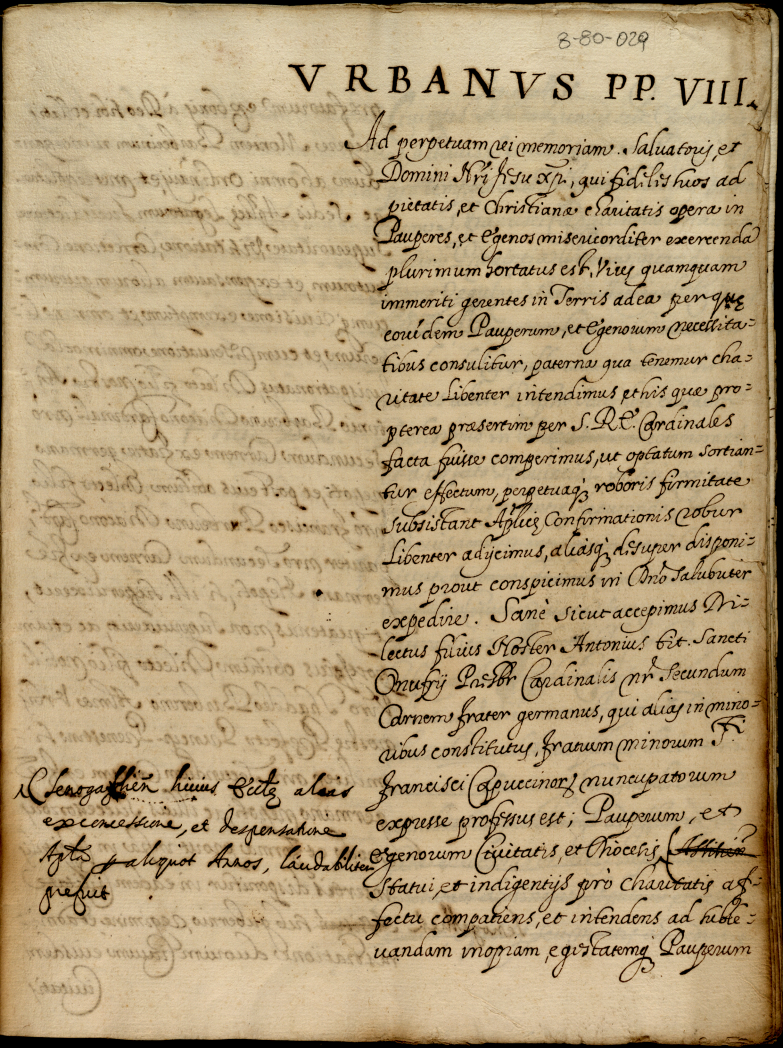 8-80-029
VRBANVS PP. VIII.
Ad perpetuam rei memoriam. Saluatoris, et
Domini Nr̃i Jesu xp̃i, qui fideles suos ad
pietatis, et Christianæ charitatis opera in
Pauperes, et Egenos misericorditer exercenda
plurimum hortatus est, Vices quamquam
immeriti gerentes in Terris ad ea per quę
eorũdem Pauperum, et Egenorum necessita=
tibus consulitur, paterna qua tenemur cha=
ritate libenter intendimus et his quæ pro=
pterea præsertim per S.R.E. Cardinales
facta fuisse comperimus, ut optatum sortian=
tur effectum, perpetuaq; roboris firmitate
subsistant Ap̃licę Confirmationis robur
libenter adijcimus, aliasq; desuper disponi=
mus prout conspicimus in Dño salubriter
expedire. Sanè sicut accepimus Di=
lectus filius Noster Antonius tit. Sancti
Onufrij Presbr̃ Cardinalis nr̃ secundum
Carnem frater germanus, qui alias in mino=
ribus constitutus, fratrum minorum S.ti
Francisci Capuccinor̃ nuncupatorum
expresse professus est; Pauperum, et
Egenorum Ciuitatis, et Diocesis
statui, et indigentijs pro charitatis af=
fectu compatiens, et intendens ad suble=
uandam inopiam, egestatemq; Pauperum
Senogallieñ huius Eccľę alias
ex concessione, et dispensatione
Apľica aliquot Annos, laudabiliter
prefuit